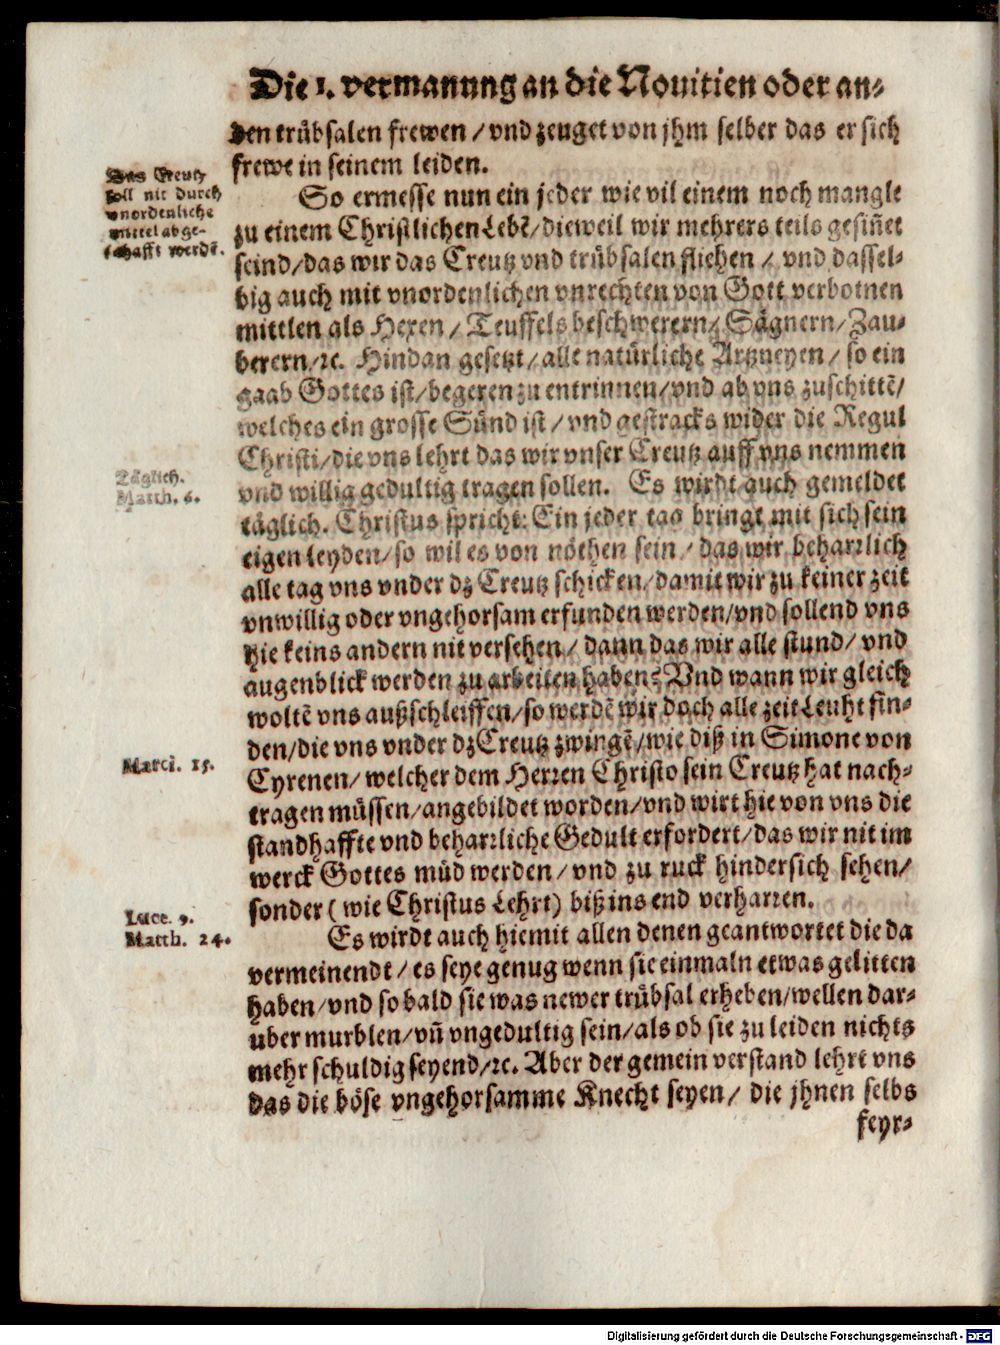 Die 1. vermanung an die Nouitien oder an-
den trübsalen frewen / vnd zeuget von jhm selber das er sich
frewe in seinem leiden.
Das Creutz
soll nit durch
vnordenliche
mittel abge-
schafft werdē.
So ermesse nun ein jeder wie vil einem noch mangle
zu einem Christlichen Lebē / dieweil wir mehrers teils gesiñet
seind / das wir das Creutz vnd trübsalen fliehen / vnd dassel-
big auch mit vnordenlichen vnrechten von Gott verbotnen
mittlen als Hexen / Teuffels beschwerern / Sägnern / Zau-
berern / ꝛc. Hindan gesetzt / alle natürliche Artzneyen / so ein
gaab Gottes ist / begeren zu entrinnen / vnd ab vns zuschittē /
welches ein grosse Sünd ist / vnd gestracks wider die Regul
Christi / die vns lehrt das wir vnser Creutz auff vns nemmen
vnd willig gedultig tragen sollen. Es wirdt auch gemeldet
Täglich.
Matth. 6.
täglich. Christus spricht: Ein jeder tag bringt mit sich sein
eigen Leyden / so wil es von nöthen sein / das wir beharꝛlich
alle tag vns vnder dz Creutz schicken / damit wir zu keiner zeit
vnwillig oder vngehorsam erfunden werden / vnd sollend vns
hie keins andern nit versehen / dann das wir alle stund / vnd
augenblick werden zu arbeiten haben? Vnd wann wir gleich
woltē vns außschleiffen / so werdē wir doch alle zeit Leuht fin-
den / die vns vnder dz Creutz zwingē / wie diß in Simone von
Marci. 15.
Cyrenen / welcher dem Herꝛen Christo sein Creutz hat nach-
tragen müssen / angebildet worden / vnd wirt hie von vns die
standhaffte vnd beharꝛliche Gedult erfordert / das wir nit im
werck Gottes müd werden / vnd zu ruck hindersich sehen /
sonder ( wie Christus Lehrt) biß ins end verharꝛen.
Luce. 9.
Matth. 24.
Es wirdt auch hiemit allen denen geantwortet die da
vermeinendt / es seye genug wenn sie einmaln etwas gelitten
haben / vnd so bald sie was newer trübsal erheben / wellen dar-
uber murblen / vñ vngedultig sein / als ob sie zu leiden nichts
mehr schuldig seyend / ꝛc. Aber der gemein verstand lehrt vns
das die böse vngehorsamme Knecht seyen / die jhnen selbs
feyr-
Digitalisierung gefördert durch die Deutsche Forschungsgemeinschaft - DFG